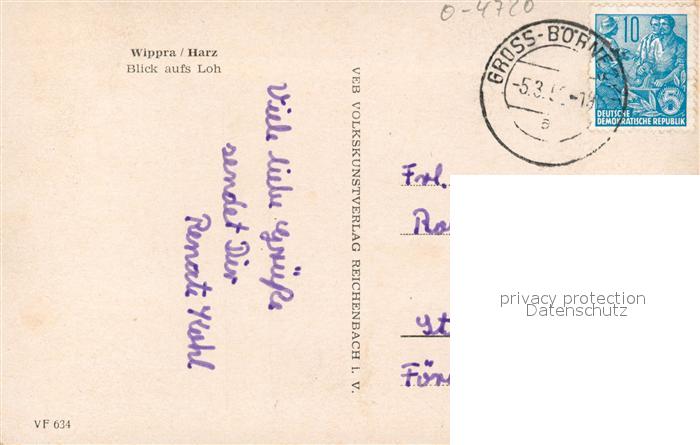 O-4720
Wippra / Harz
Blick aufs Loh
Viele liebe Grüße
sendet Dir
Renate Kohl
VEB VOLKSKUNSTVERLAG REICHENBACH i. V.
GROSS-BÖRNE
-5.3.5
a
10
5
DEUTSCHE
DEMOKRATISCHE REPUBLIK
Frl.
privacy protection
Datenschutz
VF 634